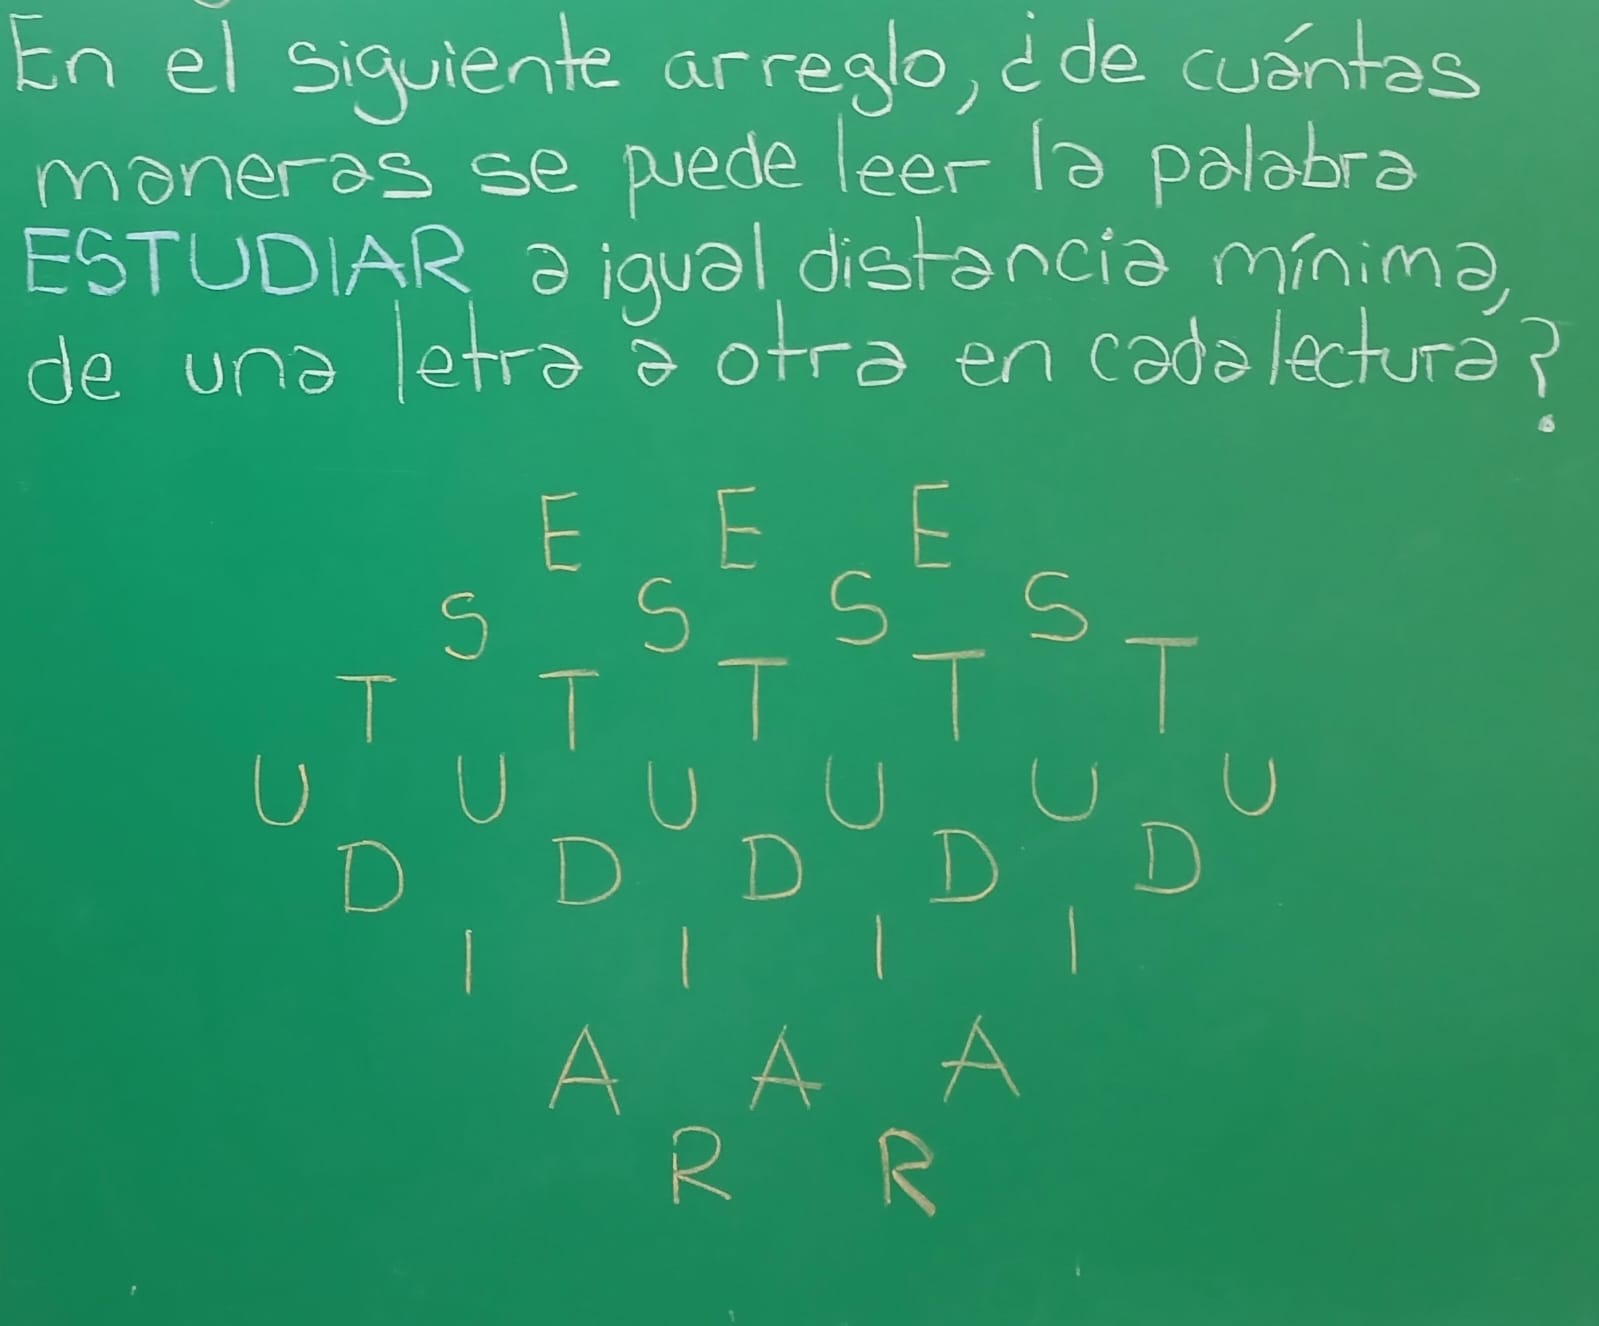 En el siguiente arreglo, ¿de cuántas
maneras se puede leer la palabra
ESTUDIAR a igual distancia mínima,
de una letra a otra en cada lectura?
E E E
S S S S
T T T T T
U U U U U U
D D D D D
I I I I
A A A
R R